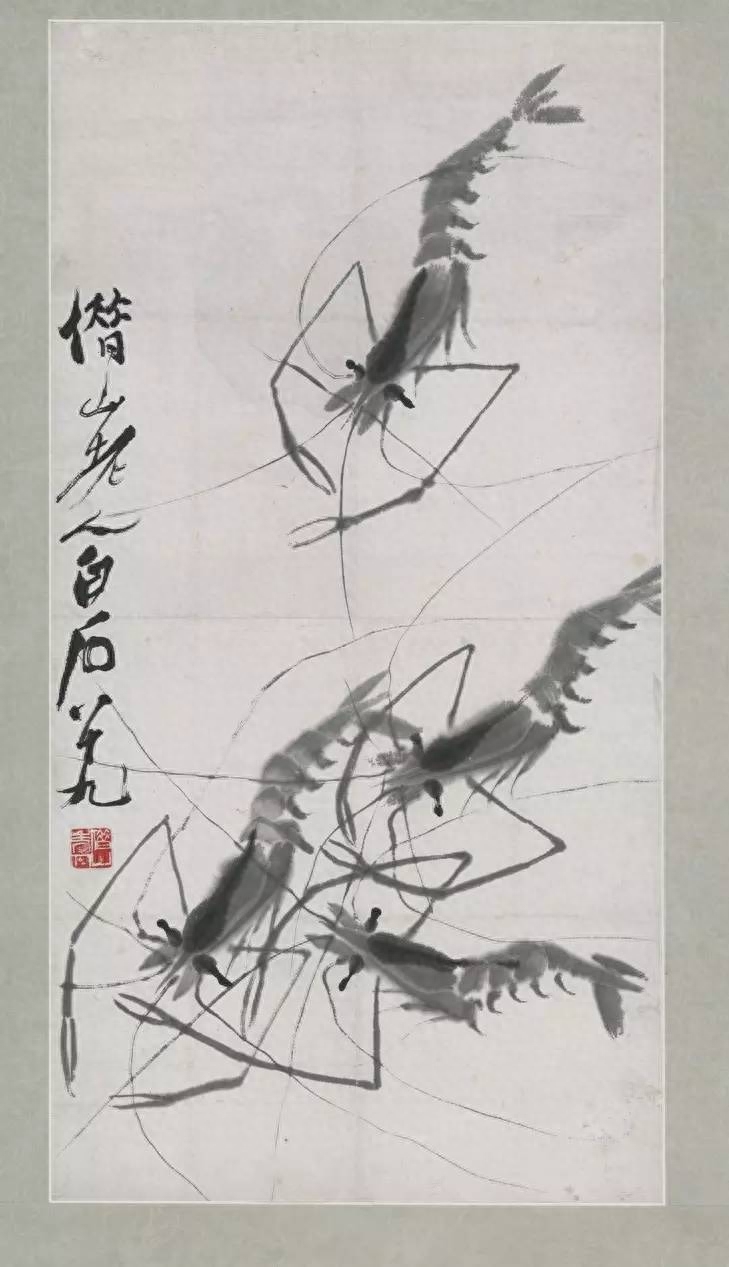 借山老人白石八十九